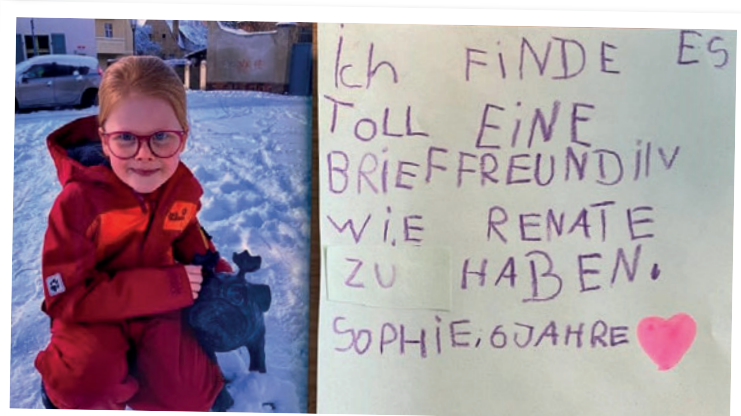 ich FiNDE ES
TOLL EiNE
BRiEFFREUNDiN
WiE RENATE
ZU HABEN.
SOPHiE, 6 JAHRE